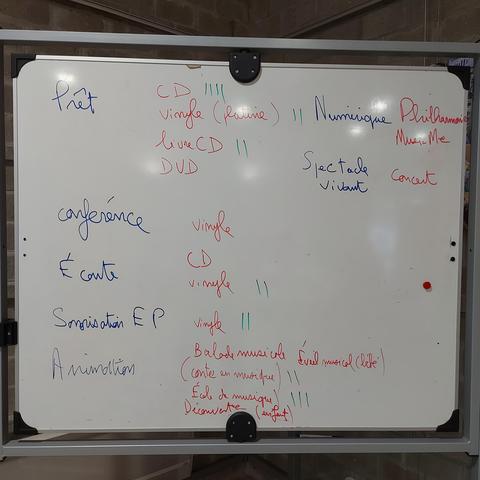 Prêt
CD ||||
vinyle (platine) ||
livre CD ||
DVD
Numérique Philharmonie
MusicMe
Spectacle
vivant
Concert
conférence vinyle
Écoute
CD
vinyle ||
Sonorisation EP vinyle ||
Animation
Balade musicale Éveil musical (bébé)
(conte en musique) ||
École de musique |||
Découverte (enfant)